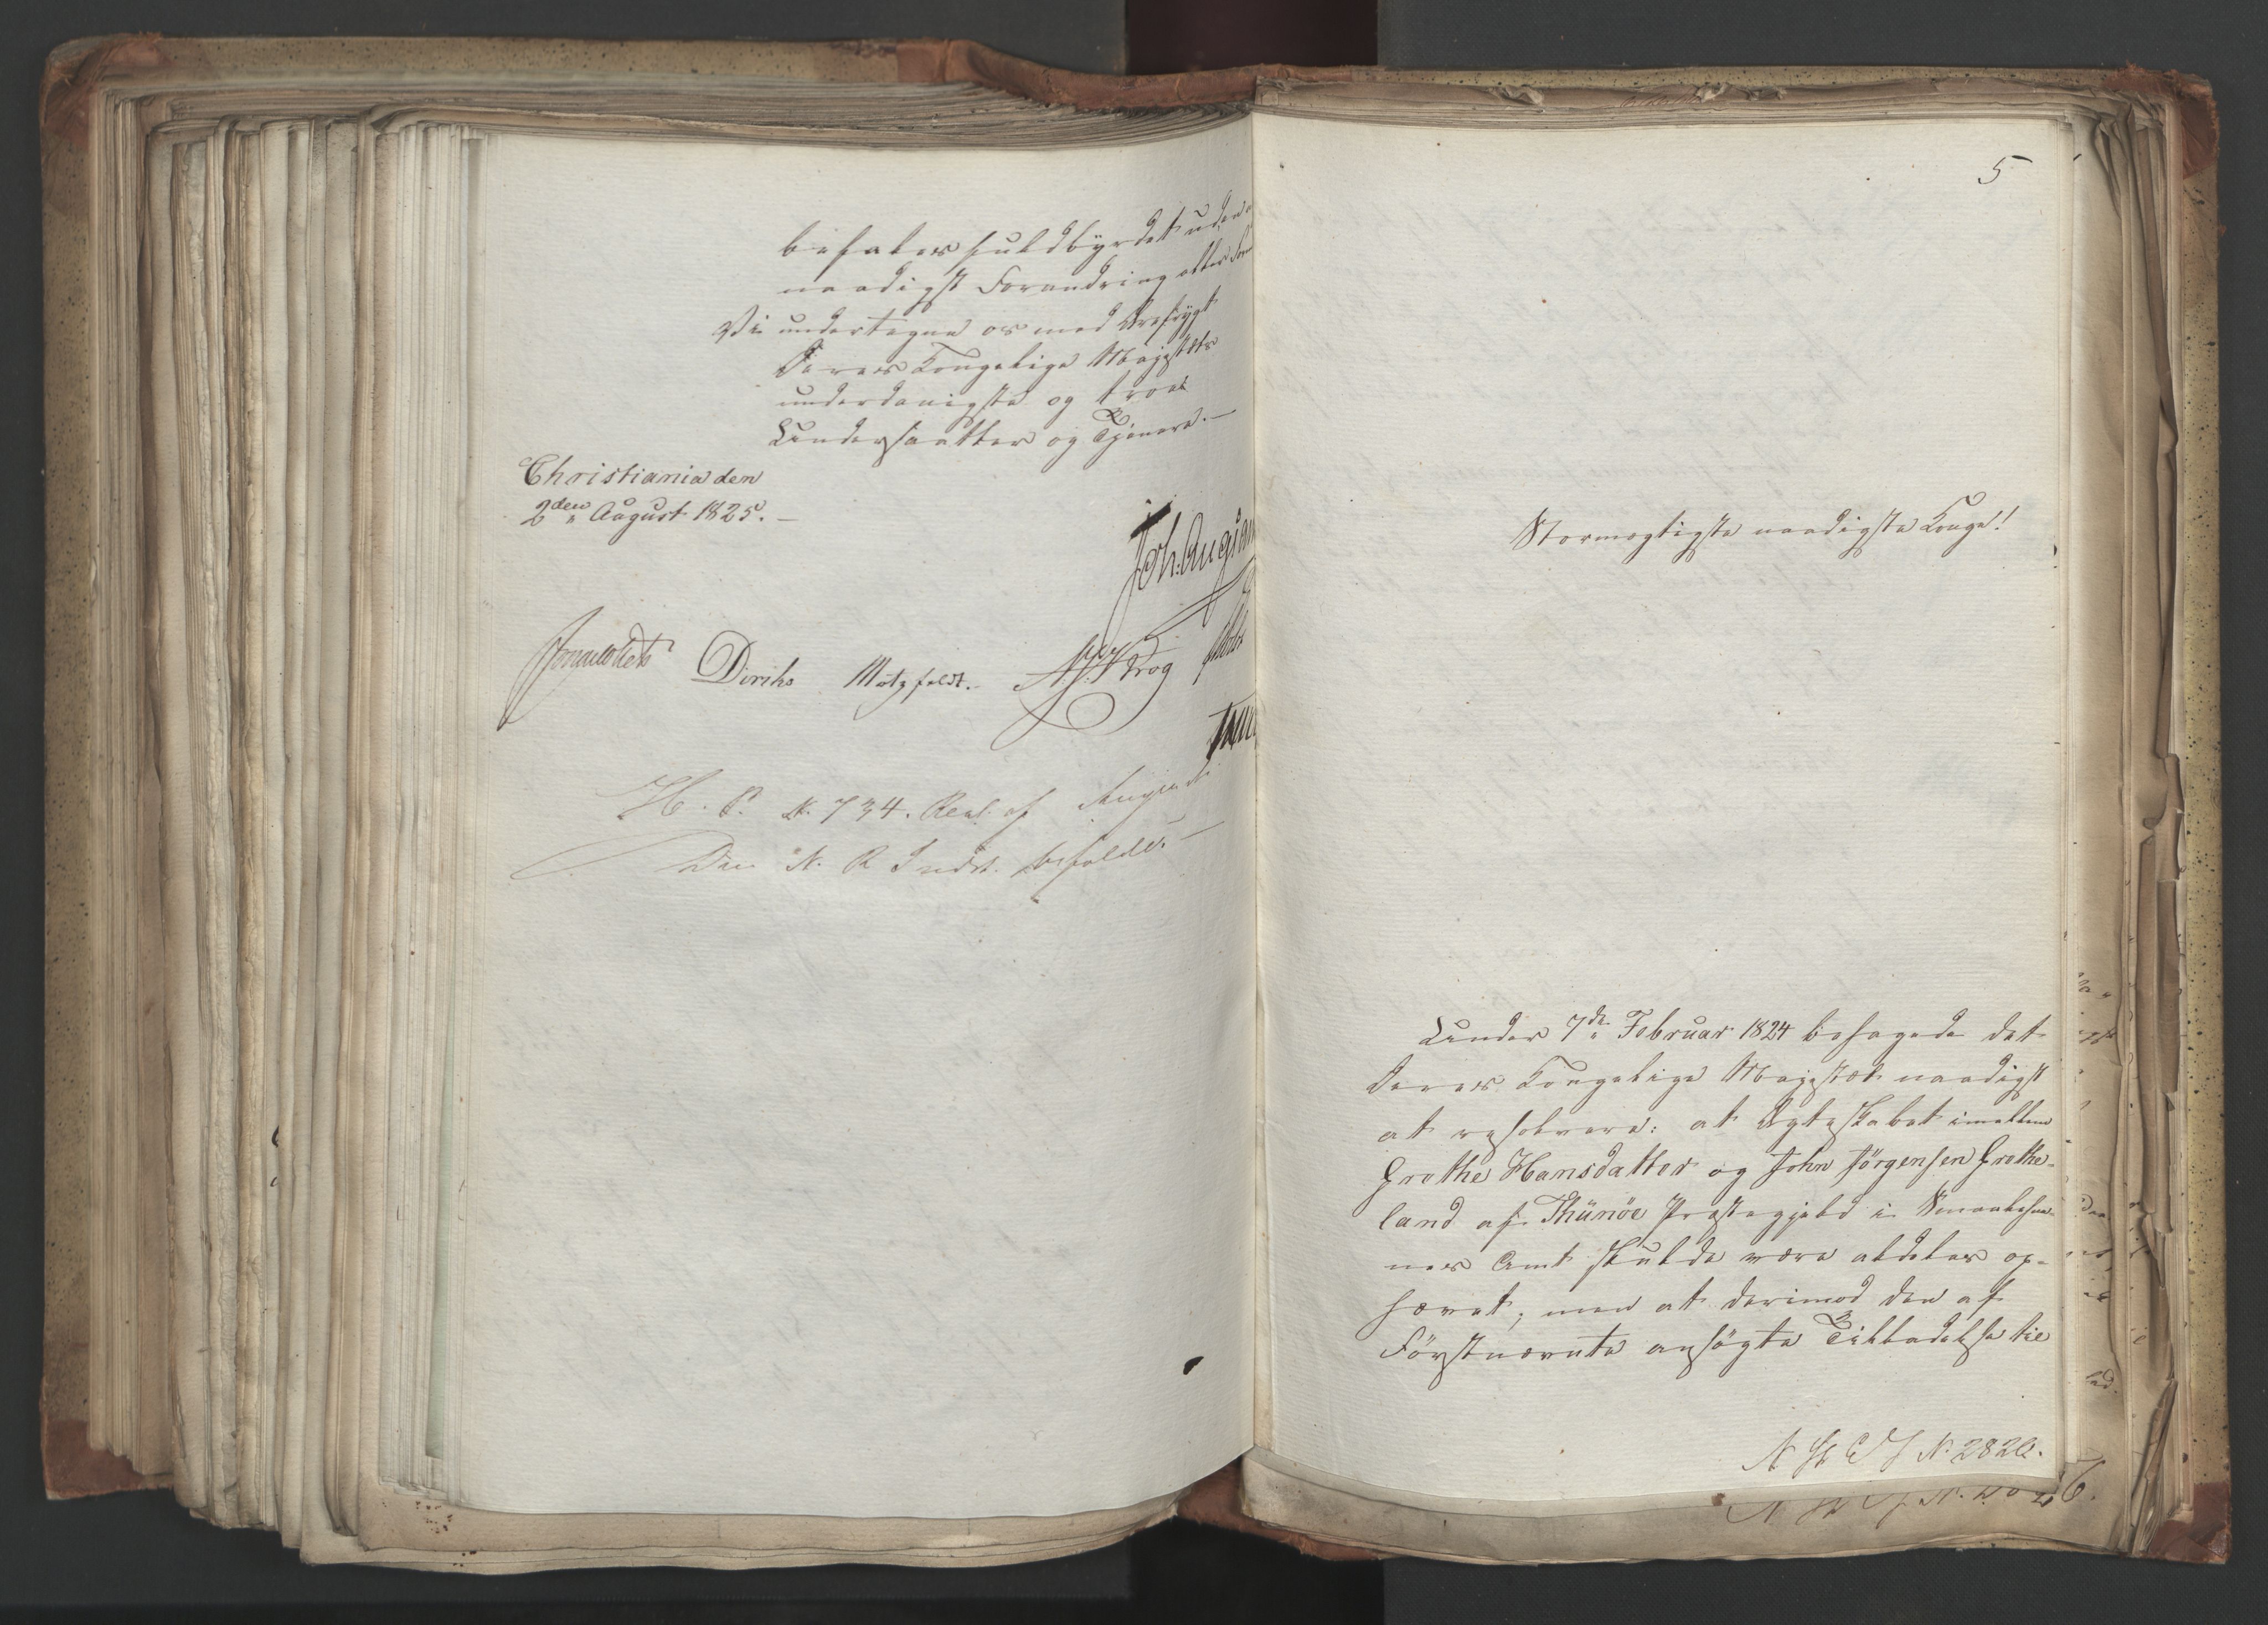 befales fuldbyrdet uden
naadigst Forandring eller
Vi undertegne os med Ærefrygt
Deres Kongelige Majestæts
underdanigste og troe
Undersaatter og Tjenere. —
Christiania den
2den August 1825. —
Joh. Aug: San
Jonas Collett Diriks Motzfeldt. A. S. Krog
H. P. N. 734. Resl. af August
Den N. R Indst. befalde —
5
Stormægtigste naadigste Konge!
Under 7de Februar 1824 behagede det
Deres Kongelige Majestæt naadigst
at resolvere: at Ægteskabet imellem
Grethe Hansdatter og John Jörgensen Grothe-
land af Thÿnöe Præstegjeld i Smaalehne-
nes Amt skulde være aldeles op-
hævet, men at derimod den af
Förstnævnte ansögte Tilladelse til
N. 2826.